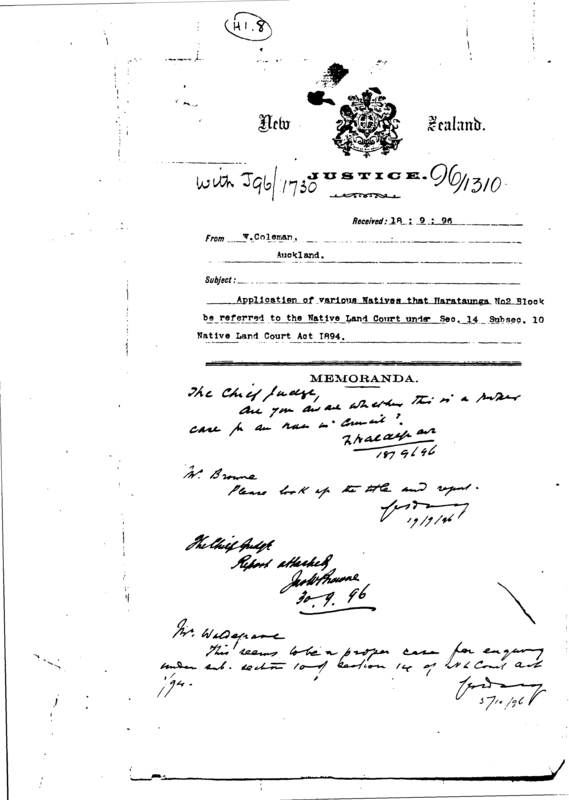 H1.8
New Zealand.
With J96/1730 JUSTICE. 96/1310
Received: 18 : 9 : 96
From W.Coleman,
Auckland.
Subject:
Application of various Natives that Harataunga No2 Block
be referred to the Native Land Court under Sec. 14 Subsec. 10
Native Land Court Act 1894.
MEMORANDA.
The Chief Judge,
Are you aware whether this is a proper
case for an Order in Council?
Mr. Browne
Please look up the title and report.
19/9/96
The Chief Judge
Report attached
Jas W Browne
30.9.96
Mr. Waldegrave
This seems to be a proper case for enquiry
under sub. section 10 of section 14 of Court Act
5/10/96